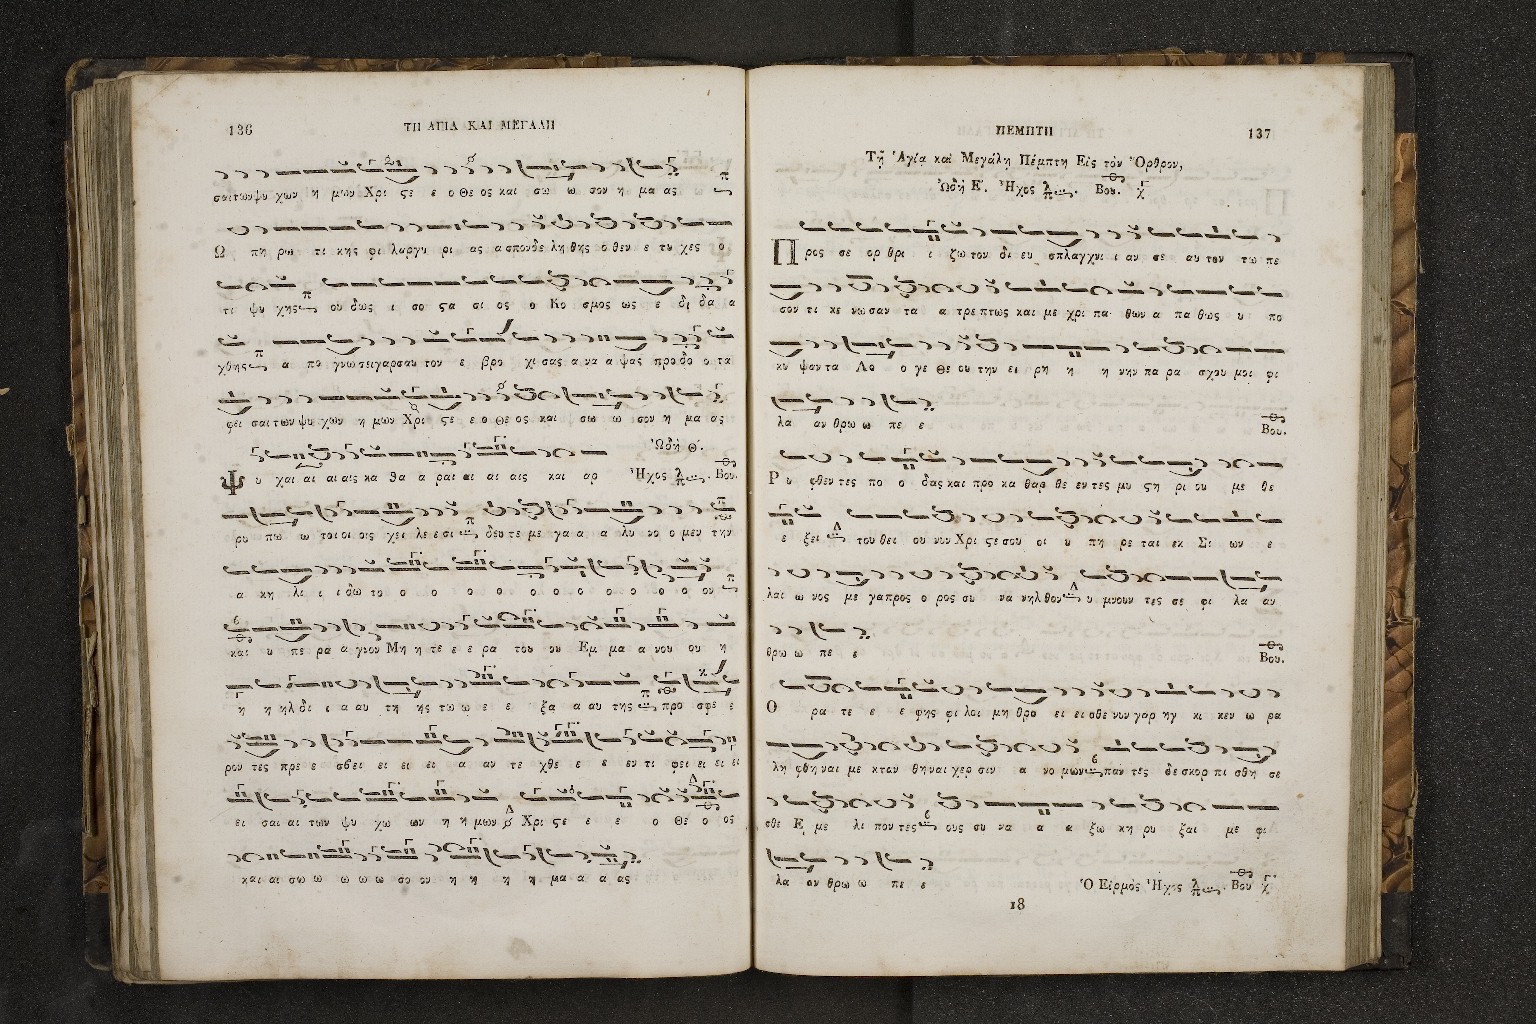 136
ΤΗ ΑΓΙΑ ΚΑΙ ΜΕΓΑΛΗ
σαιτωνψυ χων η μων Χρι ϛε ε ο Θε ος και σω ω σον η μα ας
Ω πη ρω τι κης φι λαργυ ρι ας ασπονδε λη θης ο θεν ε τυ χες ο
τι ψυ χης ου δως ι σο ϛα σι ος ο Κο σμος ως ε δι δα α
χθης α πο γνωσειγαρσαυ τον ε βρο χι σας α να α ψας προδο ο τα
φει σαι των ψυ χων η μων Χρι ϛε ε ο Θε ος και σω ω σον η μα ας
Ὠδὴ Θ΄.
Ψυ χαι αι αι αις κα θα α ραι αι αι αις και αρ Ἦχος λ π . Βου.
ρυ πω ω τοι οι οις χει λε ε σι δευ τε με γα α α λυ νο ο μεν την
α κη λι ι ι δω το ο ο ο ο ο ο ο ο ο ο ον
και υ πε ρα α γιον Μη η τε ε ε ρα του ου Εμ μα α νου ου η
η η ηλ δι ι α αυ τη ης τω ω ε ε ξα α αυ της προ σφε ε
ρον τες πρε ε σβει ει ει ει α αν τε χθε ε ε εν τι φει ει ει ει
ει σαι αι των ψυ χω ων η η μων Χρι ϛε ε ε ο Θε ο ος
και αι σω ω ω ω ω σο ον η η η η μα α α ας
ΠΕΜΠΤΗ
137
Τῇ Ἁγίᾳ καὶ Μεγάλῃ Πέμπτῃ Εἰς τὸν Ὄρθρον,
Ὠδὴ Ε΄. Ἦχος λ π . Βου. χ
Προς σε ορ θρι ι ζω τον δι ευ σπλαγχνι ι αν σε αυ τον τω πε
σον τι κε νωσαν τα α τρε πτως και με χρι πα θων α πα θως υ πο
κυ ψαν τα Λο ο γε Θε ου την ει ρη η η νην πα ρα σχου μοι φι
λα αν θρω ω πε ε
Βου.
Ρυ φθεν τες πο ο δας και προ κα θαρ θε εν τες μυ ϛη ρι ου με θε
ε ξει του θει ου νυν Χρι ϛε σου οι υ πη ρε ται εκ Σι ων ε
λαι ω νος με γαπρος ο ρος συ να νηλ θον υ μνουν τες σε φι λα αν
θρω ω πε ε
Βου.
Ο ρα τε ε ε φης φι λοι μη θρο ει ει σθε νυν γαρ ηγ κι κεν ω ρα
λη φθη ναι με κταν θη ναι χερ σιν α νο μων παν τες δε σκορ πι σθη σε
σθε Ε με λι πον τες ους συ να α α ξω κη ρυ ξαι με φι
λα αν θρω ω πε ε
Ὁ Εἱρμὸς Ἦχος λ π . Βου χ
18